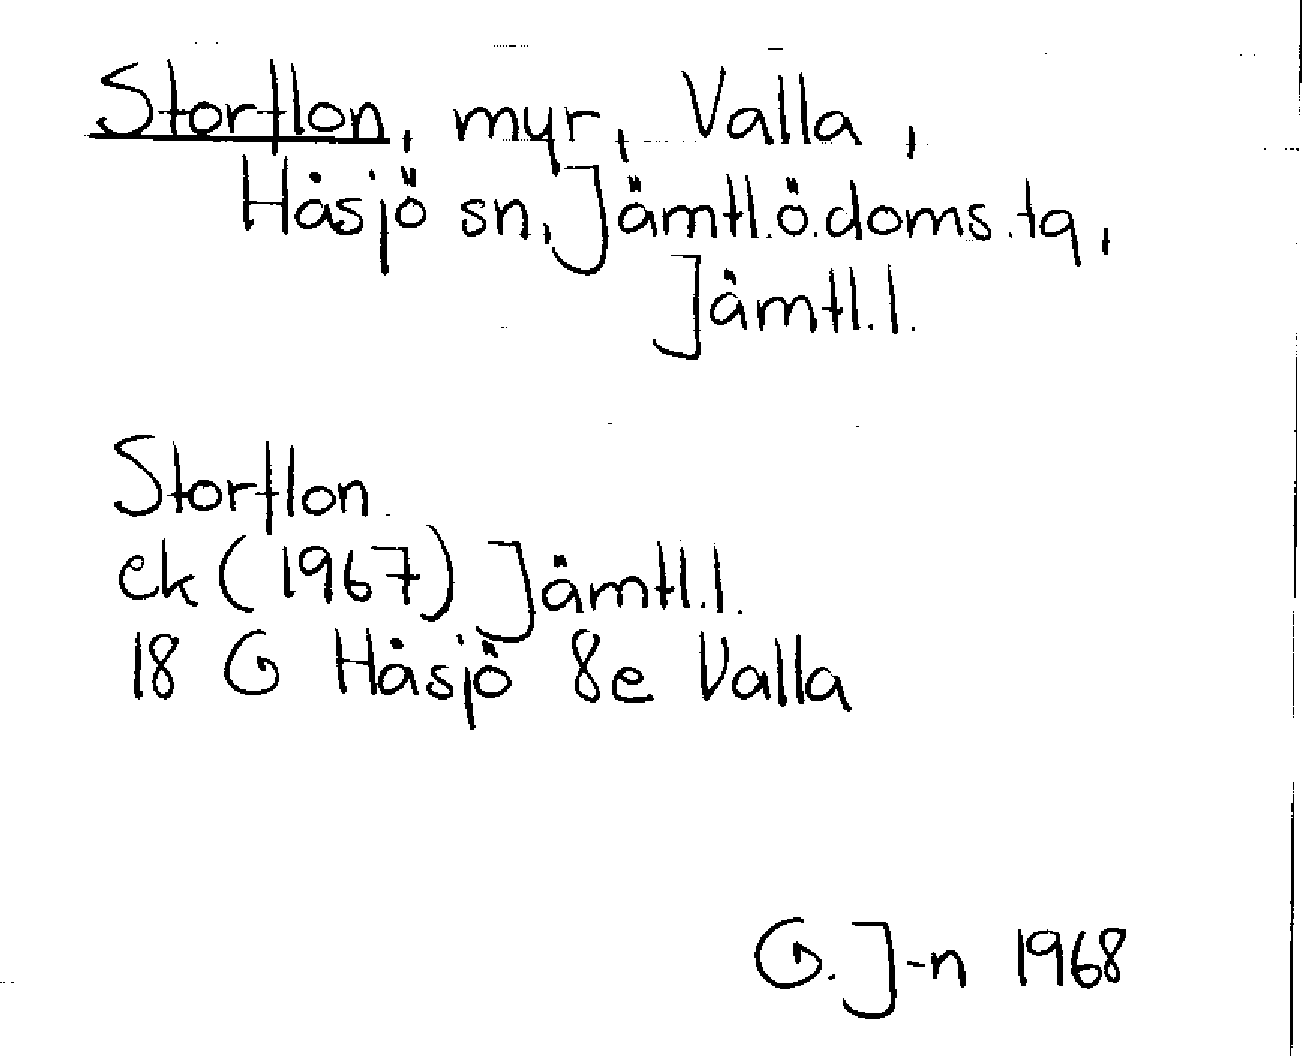 Storflon, myr, Valla,
Håsjö sn, Jämtl.ö.doms.tg,
Jämtl.l.
Storflon
ek (1967) Jämtl.l.
18 G Håsjö 8e Valla
G. J-n 1968